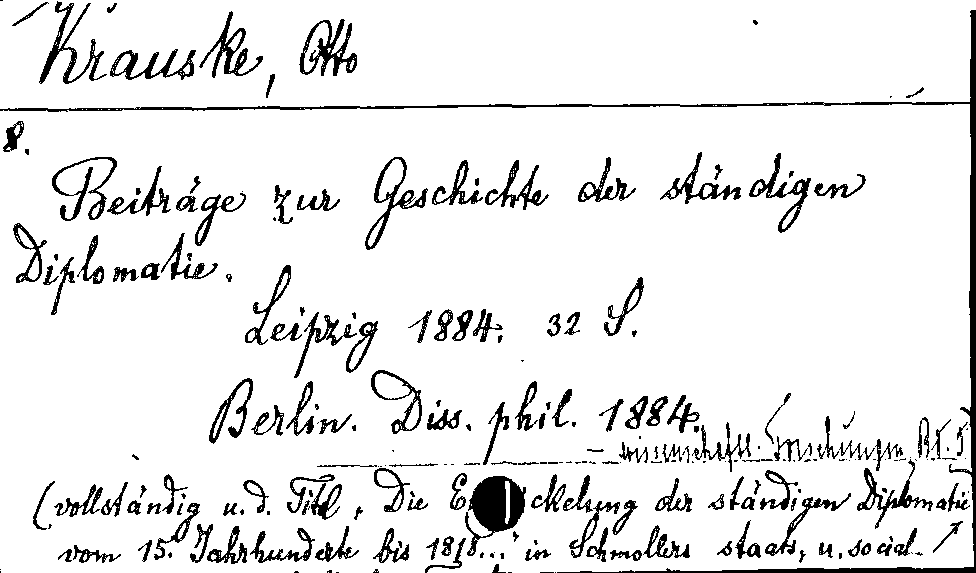 Krauske, Otto
8.
Beiträge zur Geschichte der ständigen
Diplomatie.
Leipzig 1884. 32 S.
Berlin. Diss. phil. 1884.
- wissenschaftl. Forschungen, Bd. 5
(vollständig u. d. Titel, Die E ickelung der ständigen Diplomatie
vom 15. Jahrhunderte bis 1818..." in Schmollers staats, u. social-